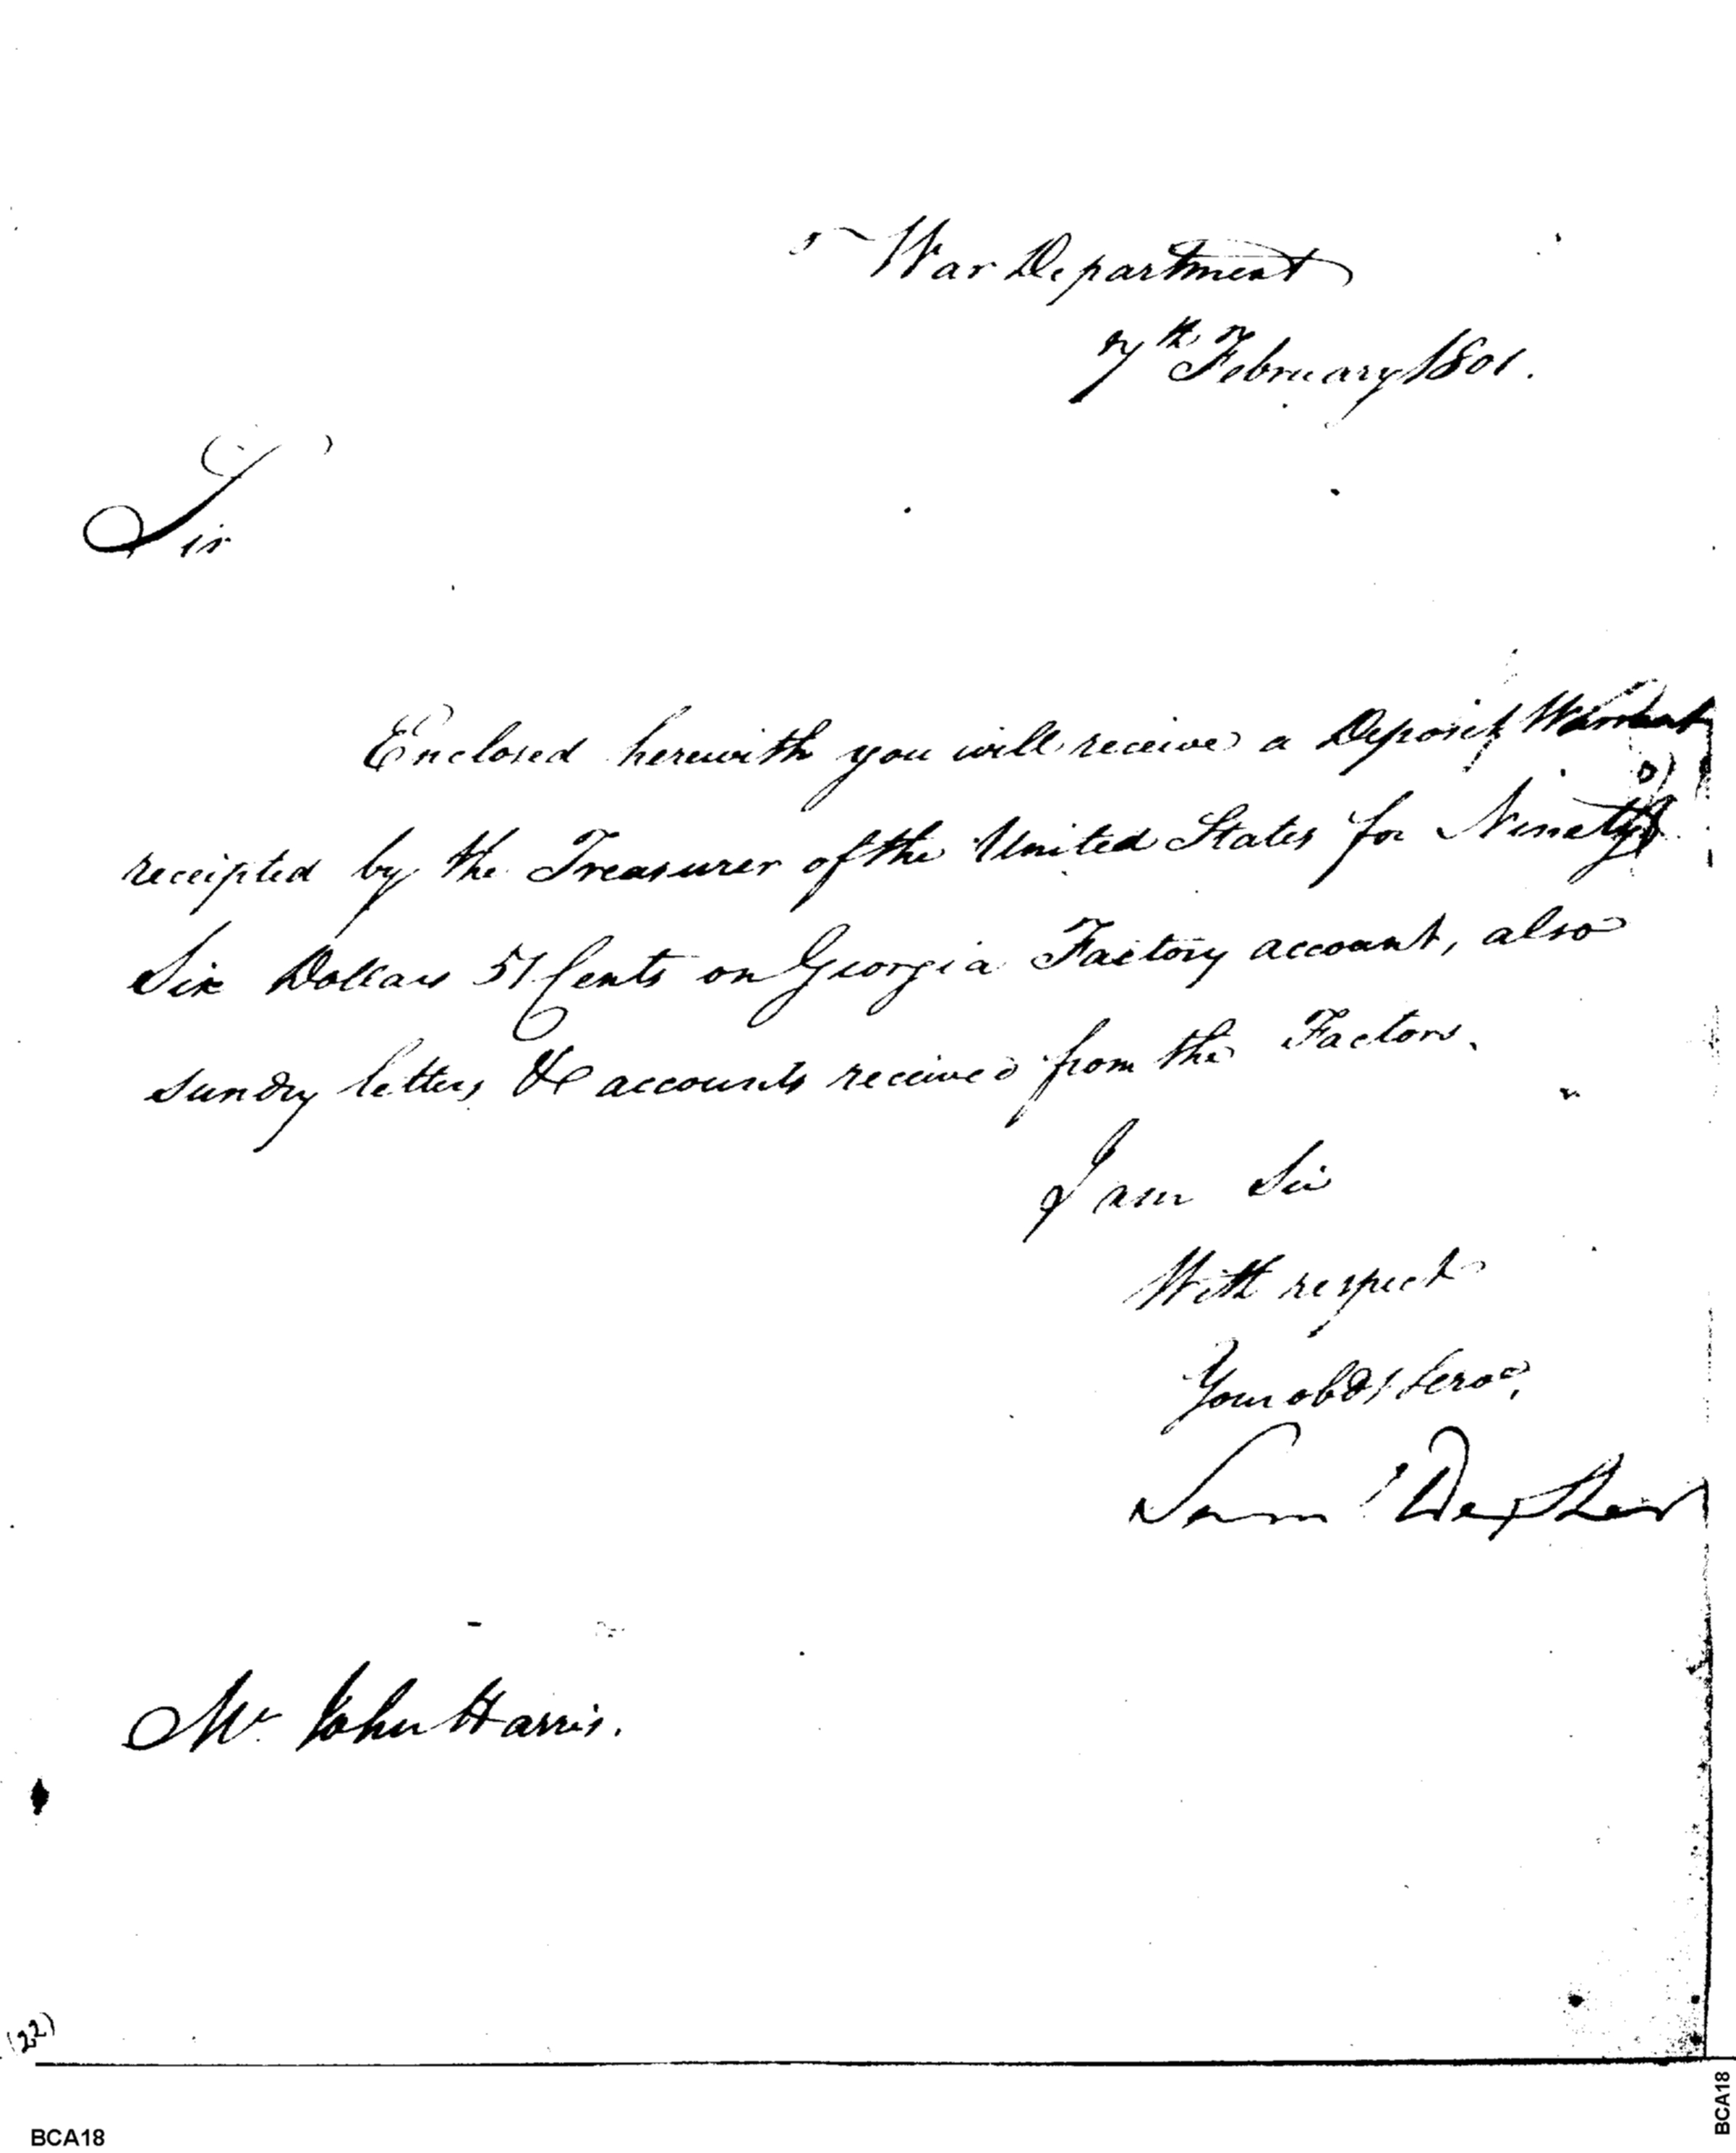 War Department
7th February 1801.
Sir
Enclosed herewith you will receive a Deposit Warrant
receipted by the Treasurer of the United States for Ninety
Six Dollars 51 Cents on Georgia Factory account, also
sundry letters & accounts received from the Factors.
I am Sir
With respect
Your obdt Servt,
Sam Dexter
Mr. John Harris.
(22)
BCA18
BCA18